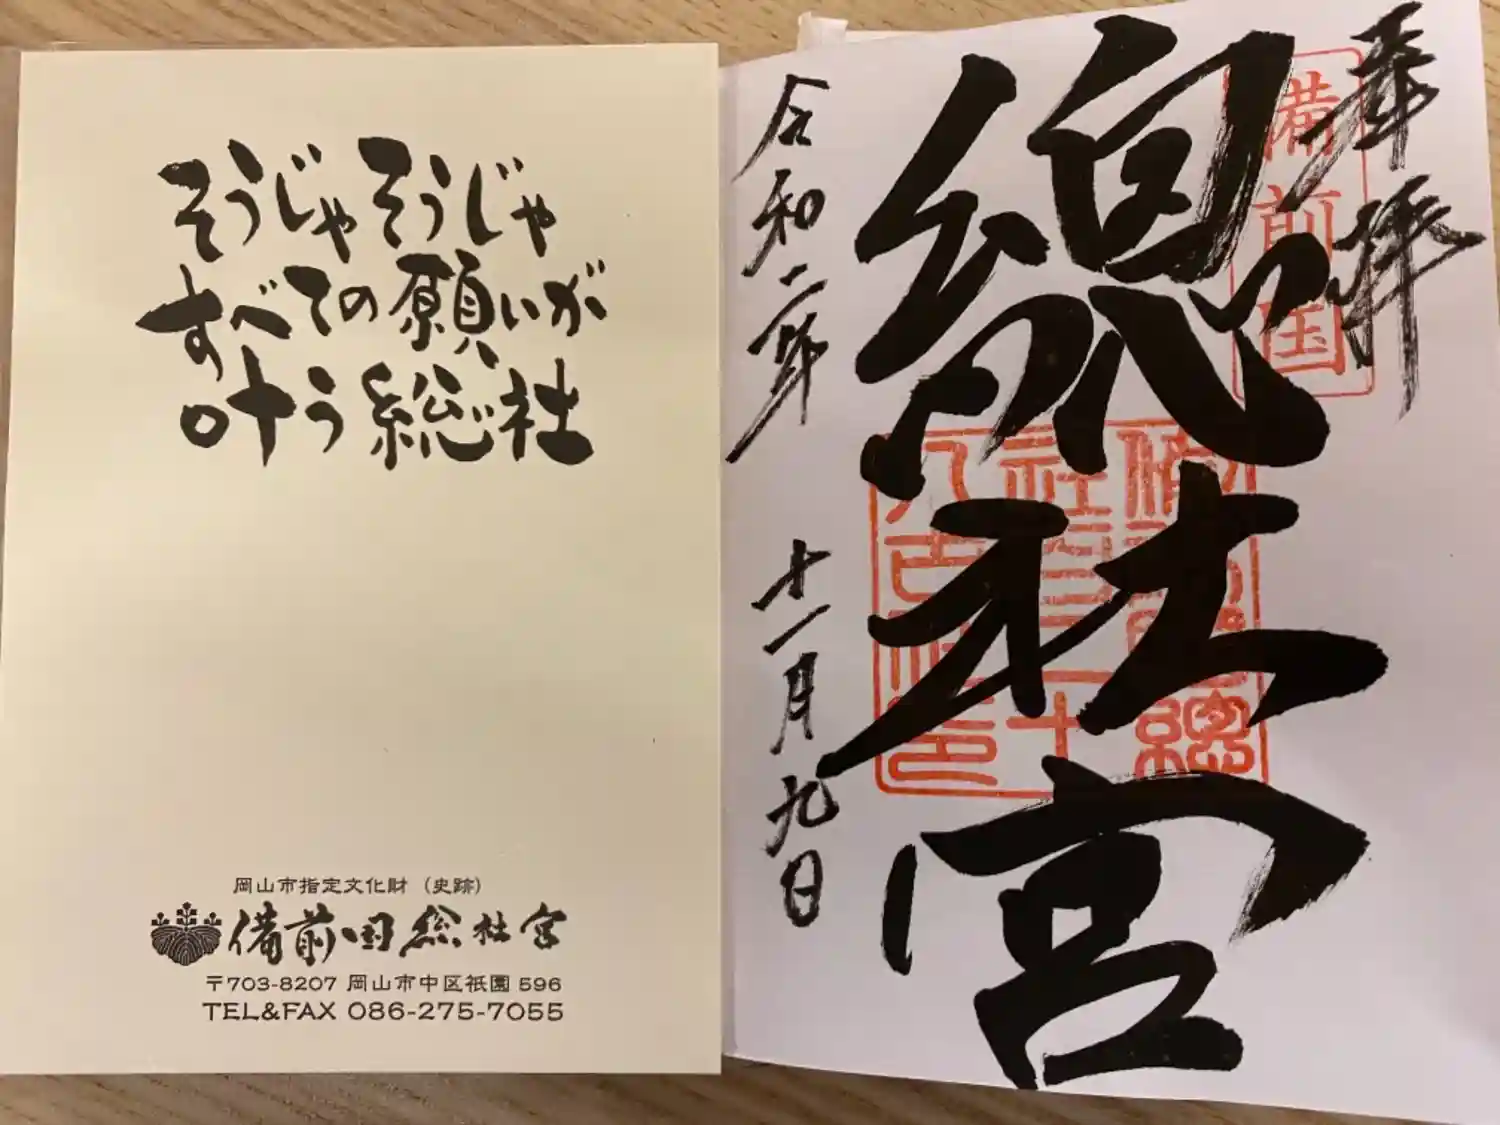 そうじゃそうじゃ
すべての願いが
叶う総社
岡山市指定文化財（史跡）
備前国総社宮
〒703-8207 岡山市中区祇園 596
TEL&FAX 086-275-7055
奉拝
備前国
總社宮
令和二年 十一月九日